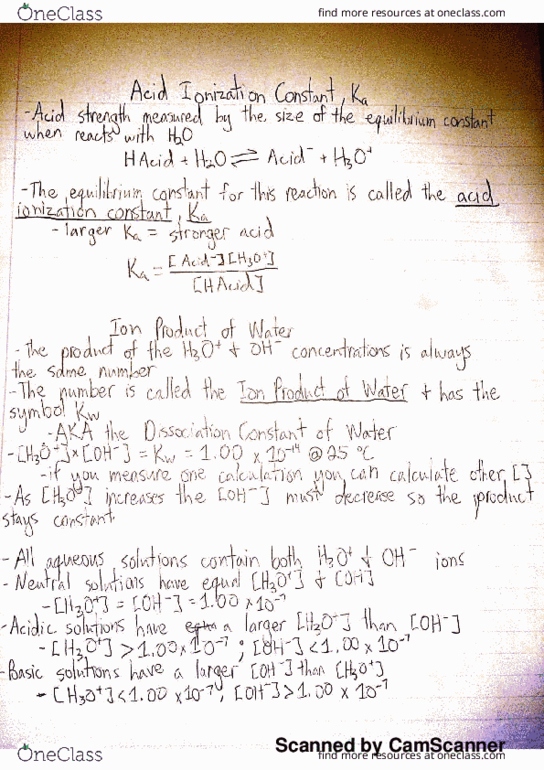 OneClass
find more resources at oneclass.com
Acid Ionization Constant, Ka
-Acid strength measured by the size of the equilibrium constant
when reacts with H2O
HAcid + H2O ⇌ Acid⁻ + H3O⁺
-The equilibrium constant for this reaction is called the acid
ionization constant, Ka
- larger Ka = stronger acid
Ka = [Acid⁻][H3O⁺]
[HAcid]
Ion Product of Water
-The product of the H3O⁺ + OH⁻ concentrations is always
the same number
-The number is called the Ion Product of Water + has the
symbol Kw
-AKA the Dissociation Constant of Water
-[H3O⁺]×[OH⁻] = Kw = 1.00 × 10⁻¹⁴ @ 25 °C
-if you measure one calculation you can calculate other []
-As [H3O⁺] increases the [OH⁻] must decrease so the product
stays constant.
- All aqueous solutions contain both H3O⁺ + OH⁻ ions
- Neutral solutions have equal [H3O⁺] + [OH⁻]
-[H3O⁺] = [OH⁻] = 1.00 × 10⁻⁷
-Acidic solutions have a larger [H3O⁺] than [OH⁻]
- [H3O⁺] > 1.00 × 10⁻⁷ ; [OH⁻] < 1.00 × 10⁻⁷
-Basic solutions have a larger [OH⁻] than [H3O⁺]
- [H3O⁺] < 1.00 × 10⁻⁷ ; [OH⁻] > 1.00 × 10⁻⁷
Scanned by CamScanner
OneClass
find more resources at oneclass.com